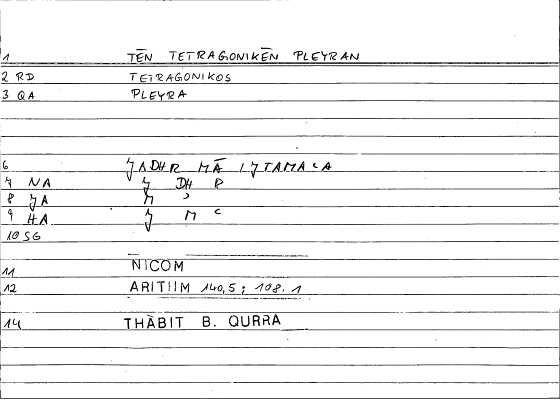 1 TĒN TETRAGONIKĒN PLEYRAN
2 RD TETRAGONIKOS
3 QA PLEYRA
6 ǦADHR MĀ IǦTAMAʿA
7 NA Ǧ DH R
8 ǦA M ʾ
9 HA Ǧ M ʿ
10 SG
11 NICOM
12 ARITHM 140,5; 108.1
14 THĀBIT B. QURRA